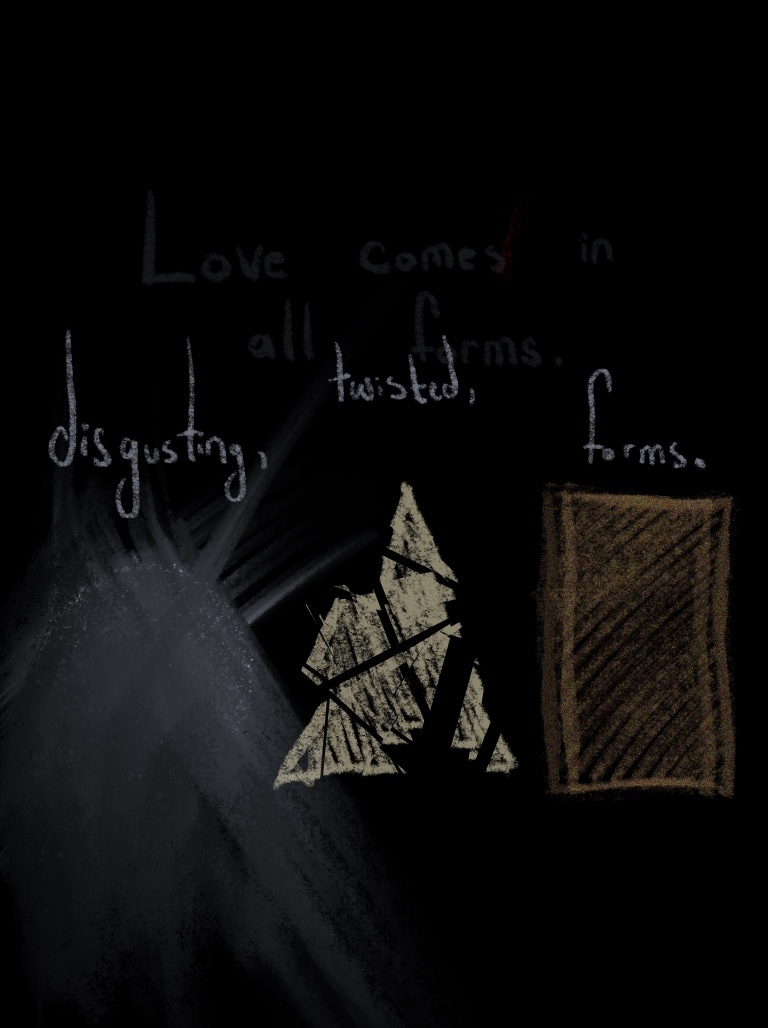 Love comes in
all forms.
disgusting, twisted, forms.